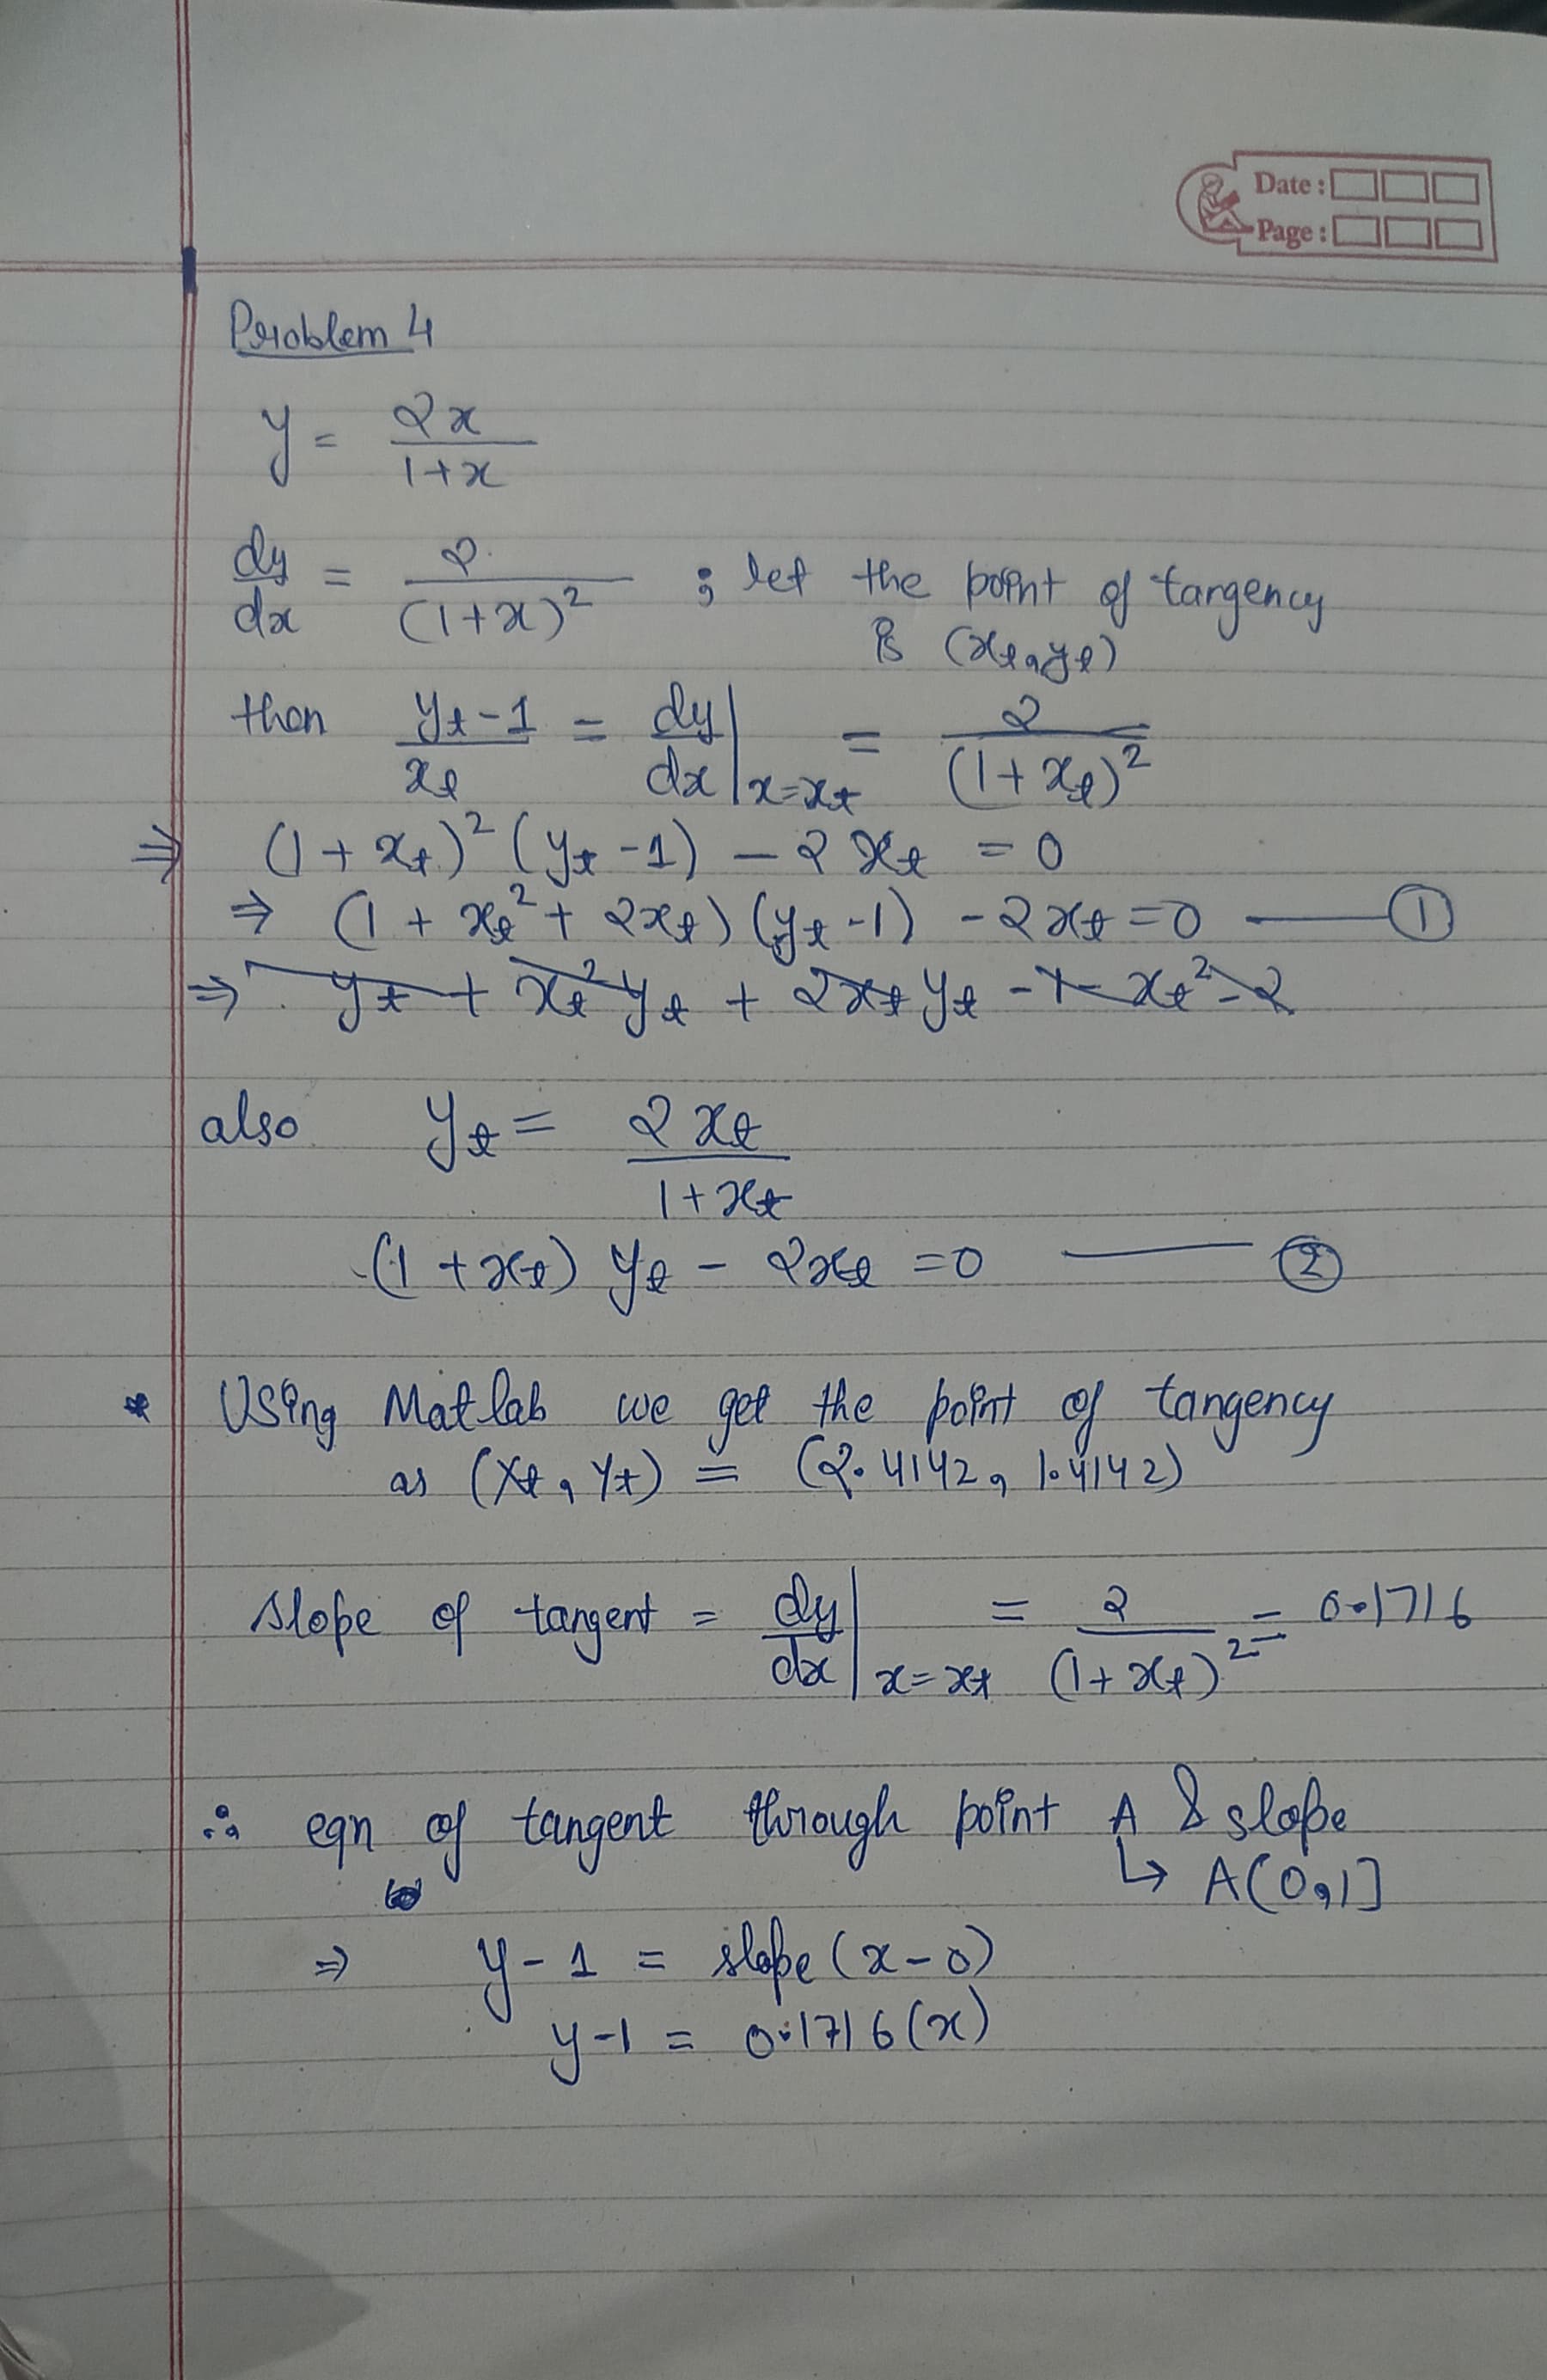 Date :
Page :
Problem 4
y = 2x / 1+x
dy/dx = 2 / (1+x)² ; let the point of tangency
is (xt, yt)
then yt-1 / xt = dy/dx | x=xt = 2 / (1+xt)²
⇒ (1+xt)² (yt-1) - 2xt = 0
⇒ (1 + xt² + 2xt) (yt-1) - 2xt = 0 —— ①
⇒ yt + xt² yt + 2xt yt - 1 - xt² - 2
also yt = 2xt / 1+xt
(1+xt) yt - 2xt = 0 —— ②
* Using Matlab we get the point of tangency
as (xt, yt) = (2.4142, 1.4142)
slope of tangent = dy/dx | x=xt = 2 / (1+xt)² = 0.1716
∴ eqn of tangent through point A & slope
↳ A(0,1]
⇒ y-1 = slope (x-0)
y-1 = 0.1716(x)